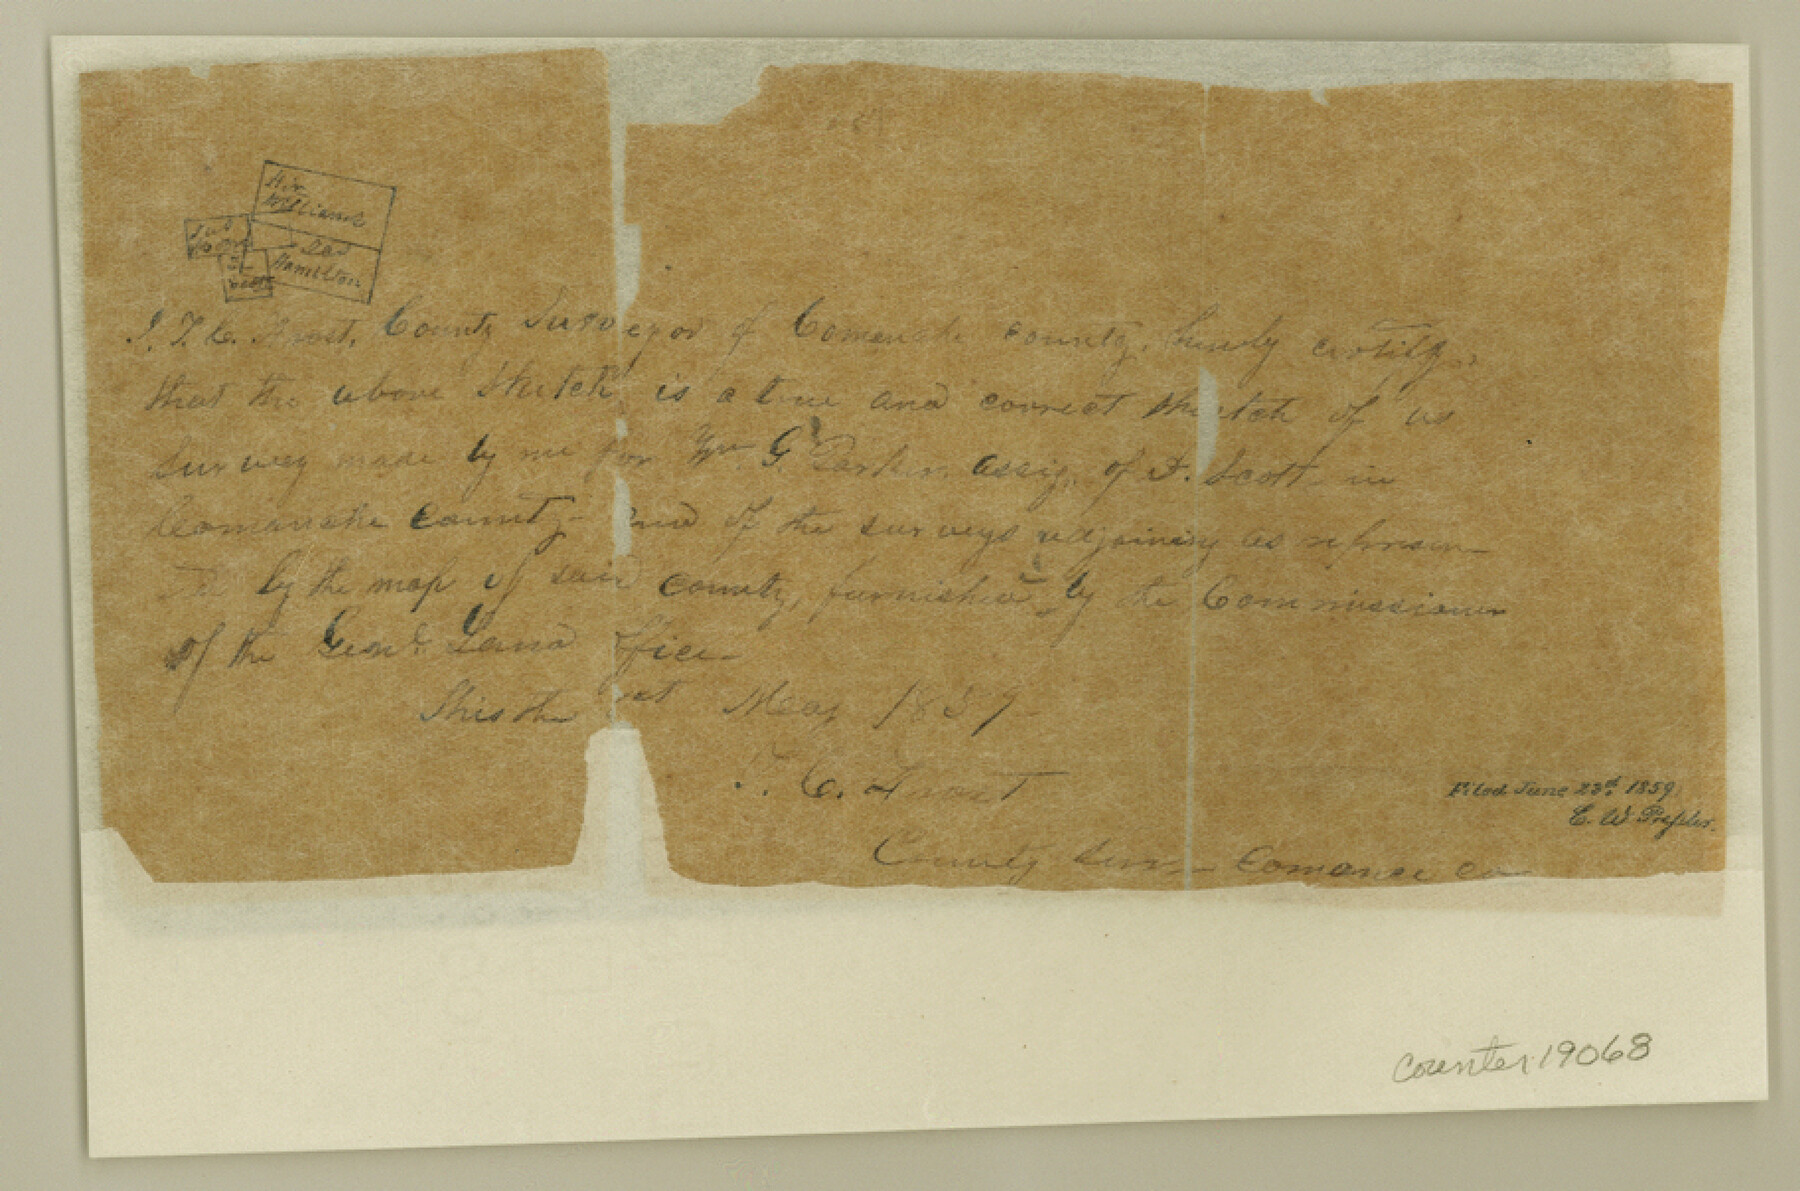 Hir
Williams
Jas
Hamilton
Scott
I. T. C. Frost, County Surveyor of Comanche county, hereby certify
that the above sketch is a true and correct sketch of us
survey made by me for Wm G. Parker. assig. of D. Scott in
Comanche county and of the surveys adjoining as represen-
ted by the map of said county, furnished by the Commissioner
of the Genl Land office
This the 1st May 1859
T. C. Frost
County Surv Comance co
Filed June 23rd 1859
C. W. Pressler.
counter 19068